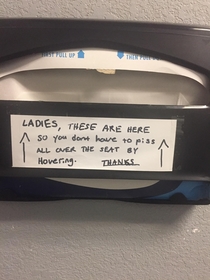 FIRST PULL UP
THEN PULL
LADIES, THESE ARE HERE
SO you dont have to piss
ALL OVER THE SEAT BY
Hovering. THANKS